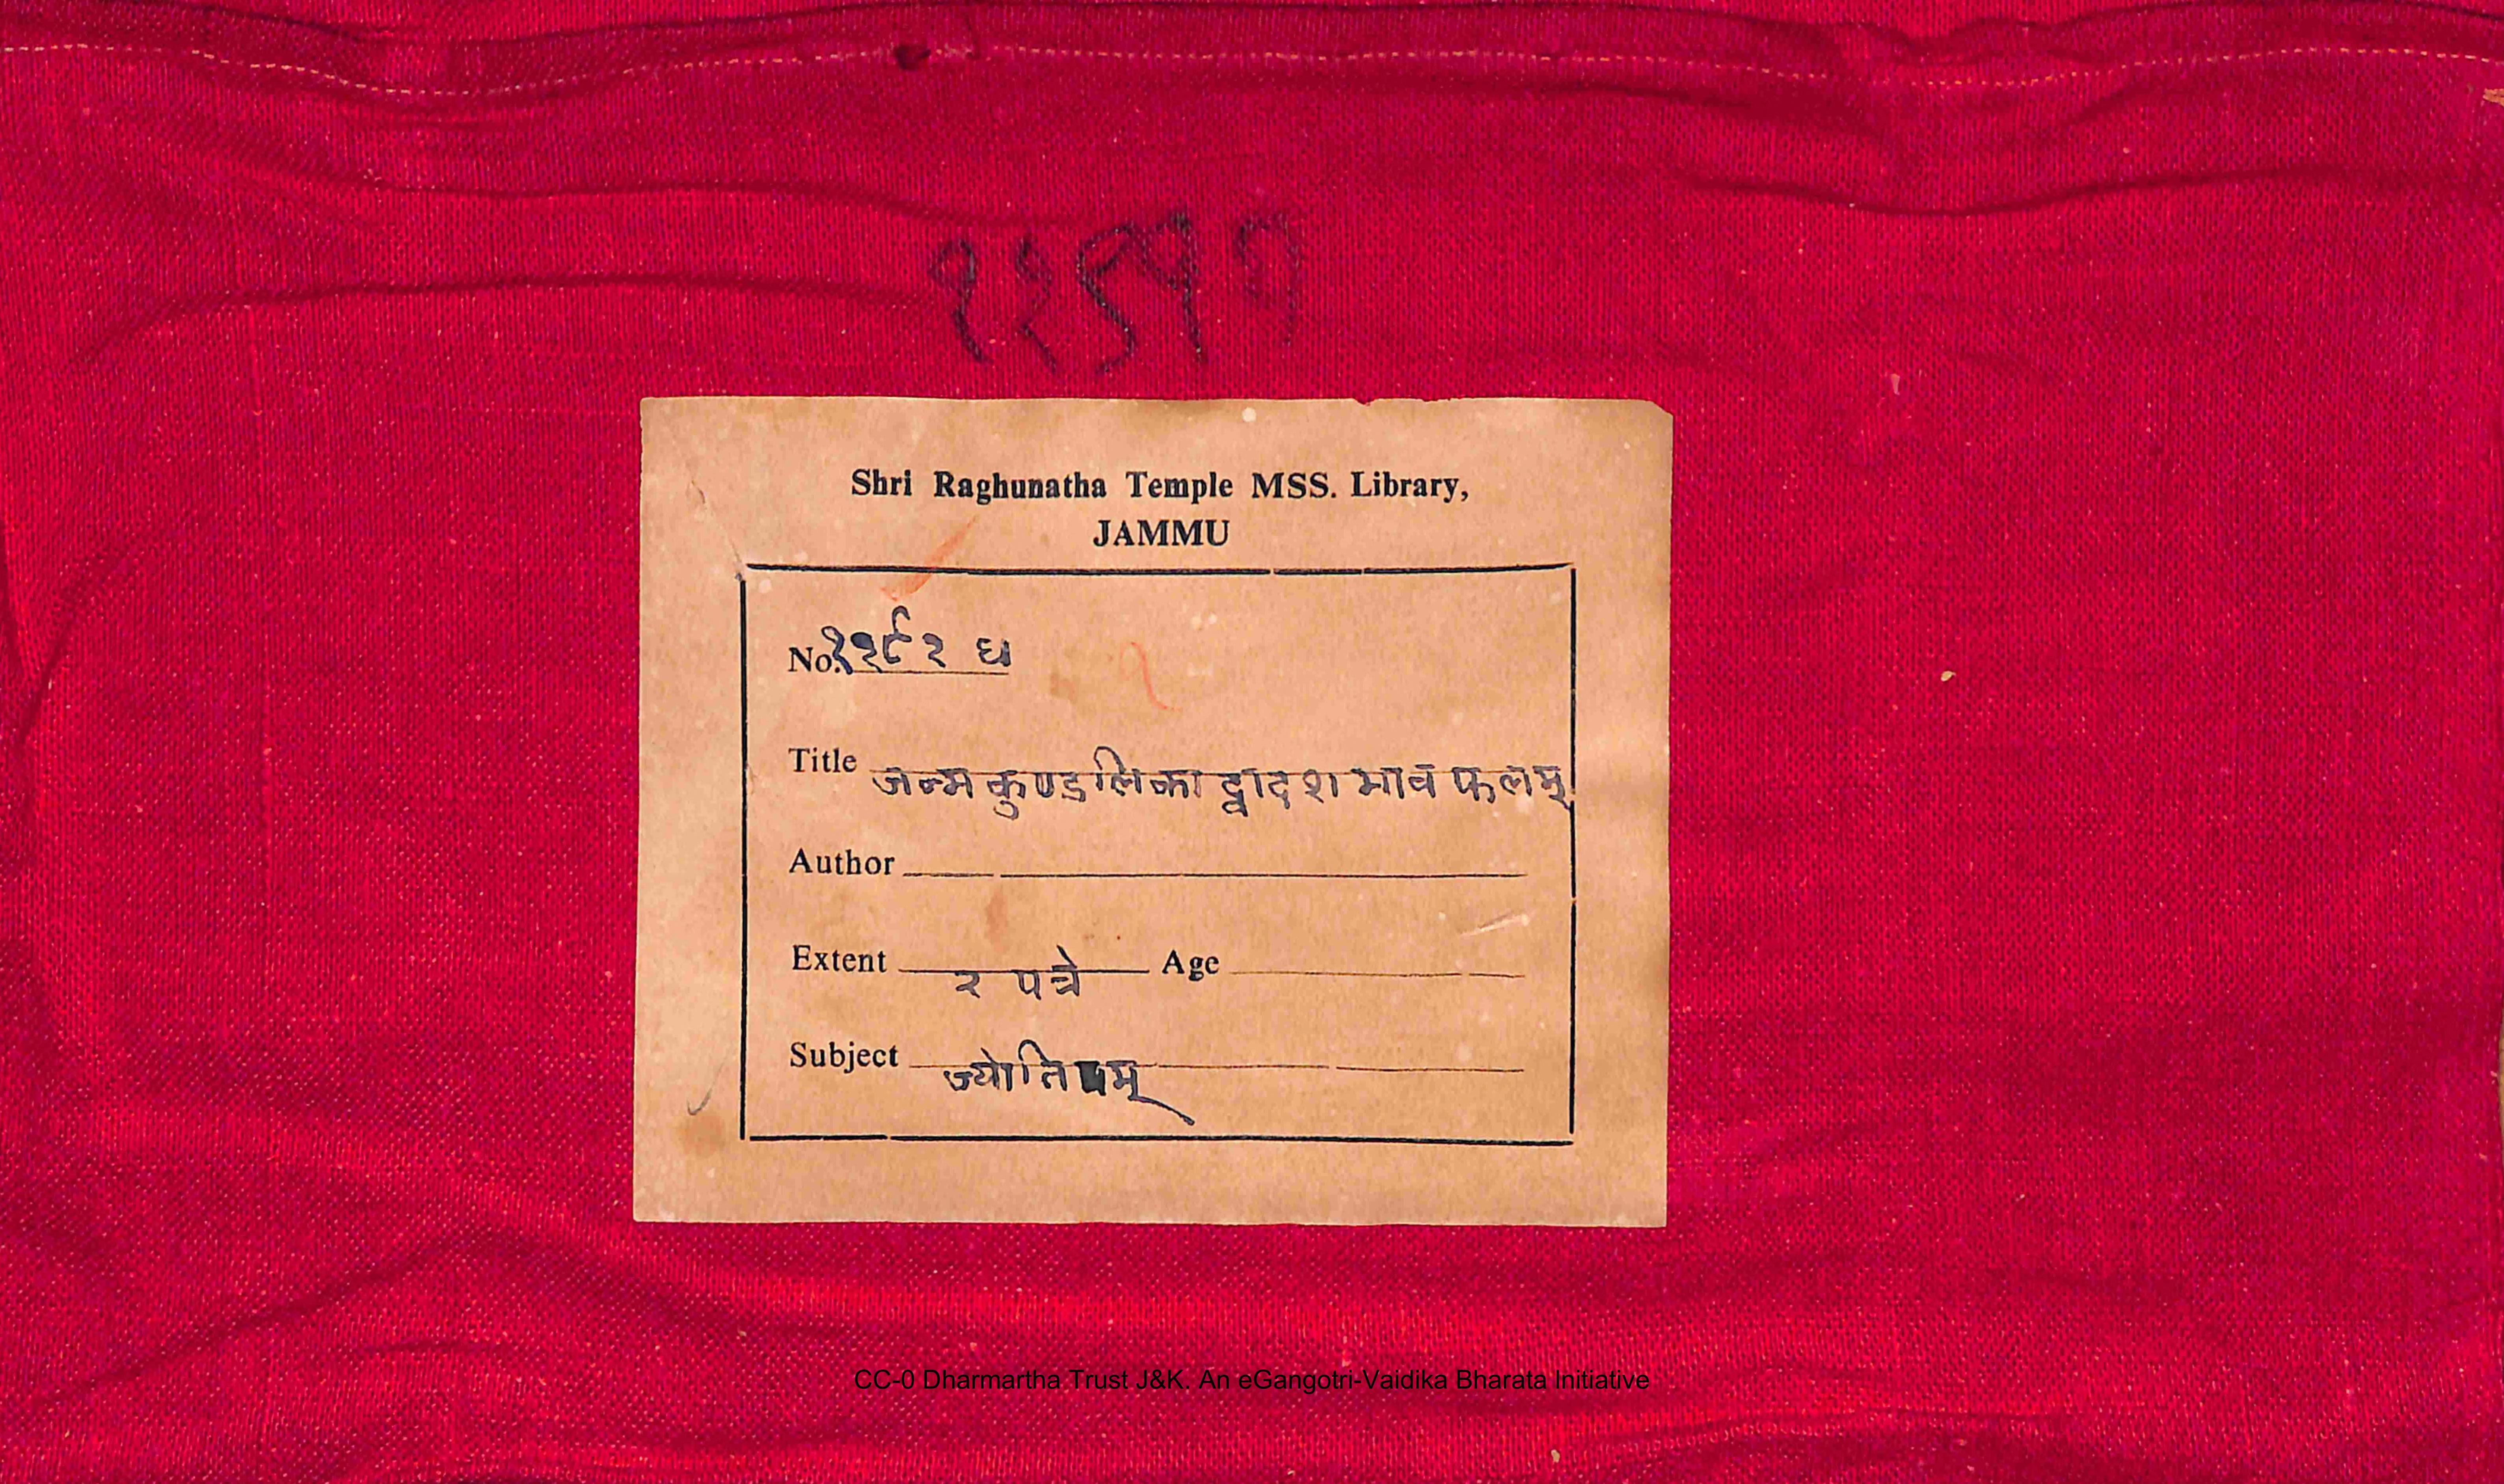 Shri Raghunatha Temple MSS. Library,
JAMMU
No. ११९२ घ
Title जन्म कुण्डलिका द्वादश भाव फलम्
Author
Extent २ पत्रे Age
Subject ज्योतिषम्
CC-0 Dharmartha Trust J&K. An eGangotri-Vaidika Bharata Initiative